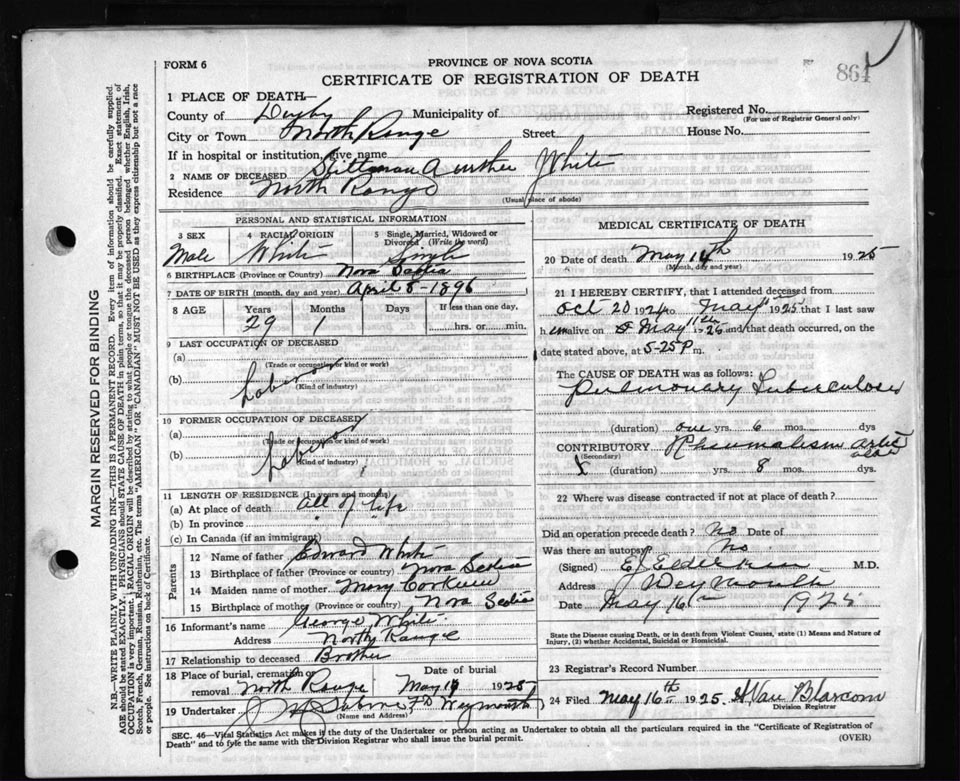 FORM 6
PROVINCE OF NOVA SCOTIA
CERTIFICATE OF REGISTRATION OF DEATH
864
MARGIN RESERVED FOR BINDING
N.B.—WRITE PLAINLY WITH UNFADING INK—THIS IS A PERMANENT RECORD. Every item of information should be carefully supplied.
AGE should be stated EXACTLY. PHYSICIANS should STATE CAUSE OF DEATH in plain terms, so that it may be properly classified. Exact statement of
OCCUPATION is very important. RACIAL ORIGIN will be described by stating to what people or tongue the deceased person belonged whether English, Irish,
Scotch, French, German, Russian, Ruthenian, etc. The terms "AMERICAN" or "CANADIAN" MUST NOT BE USED as they express citizenship but not a race
or people. See instructions on back of Certificate.
1 PLACE OF DEATH—
County of Digby Municipality of Registered No.
(For use of Registrar General only)
City or Town North Range Street House No.
If in hospital or institution, give name
2 NAME OF DECEASED White
Residence North Range
(Usual place of abode)
PERSONAL AND STATISTICAL INFORMATION
3 SEX Male
4 RACIAL ORIGIN White
5 Single, Married, Widowed or Divorced (Write the word) Single
6 BIRTHPLACE (Province or Country) Nova Scotia
7 DATE OF BIRTH (month, day and year) April 8-1896
8 AGE Years Months Days If less than one day,
29 1 hrs. or min.
9 LAST OCCUPATION OF DECEASED
(a)
(Trade or occupation or kind or work)
(b) Laboror
(Kind of industry)
10 FORMER OCCUPATION OF DECEASED
(a)
(Trade or occupation or kind or work)
(b) Laboror
(Kind of industry)
11 LENGTH OF RESIDENCE (In years and months)
(a) At place of death all of life
(b) In province
(c) In Canada (if an immigrant)
Parents
12 Name of father Edward White
13 Birthplace of father (Province or Country) Nova Scotia
14 Maiden name of mother Mary
15 Birthplace of mother (Province or country) Nova Scotia
16 Informant's name George White
Address North Range
17 Relationship to deceased Brother
18 Place of burial, cremation or removal North Range Date of burial May 1925
19 Undertaker Weymouth
(Name and Address)
MEDICAL CERTIFICATE OF DEATH
20 Date of death May 14th 1925
(Month, day and year)
21 I HEREBY CERTIFY, that I attended deceased from
Oct 20 1924 to May 1925 that I last saw
h alive on May 11 and that death occurred, on the
date stated above, at 5-25 P m.
The CAUSE OF DEATH was as follows:
Pulmonary Tuberculosis
(duration) one yrs. 6 mos. dys
CONTRIBUTORY Rheumatism
(Secondary)
(duration) yrs. 8 mos. dys.
22 Where was disease contracted if not at place of death?
Did an operation precede death? no Date of
Was there an autopsy? no
(Signed) M.D.
Address Weymouth
Date May 16th 1925
State the Disease causing Death, or in death from Violent Causes, state (1) Means and Nature of
Injury, (2) whether Accidental, Suicidal or Homicidal.
23 Registrar's Record Number
24 Filed May 16th 1925 Van Blarcom
Division Registrar
SEC. 46—Vital Statistics Act makes it the duty of the Undertaker or person acting as Undertaker to obtain all the particulars required in the "Certificate of Registration of
Death" and to fyle the same with the Division Registrar who shall issue the burial permit.
(OVER)